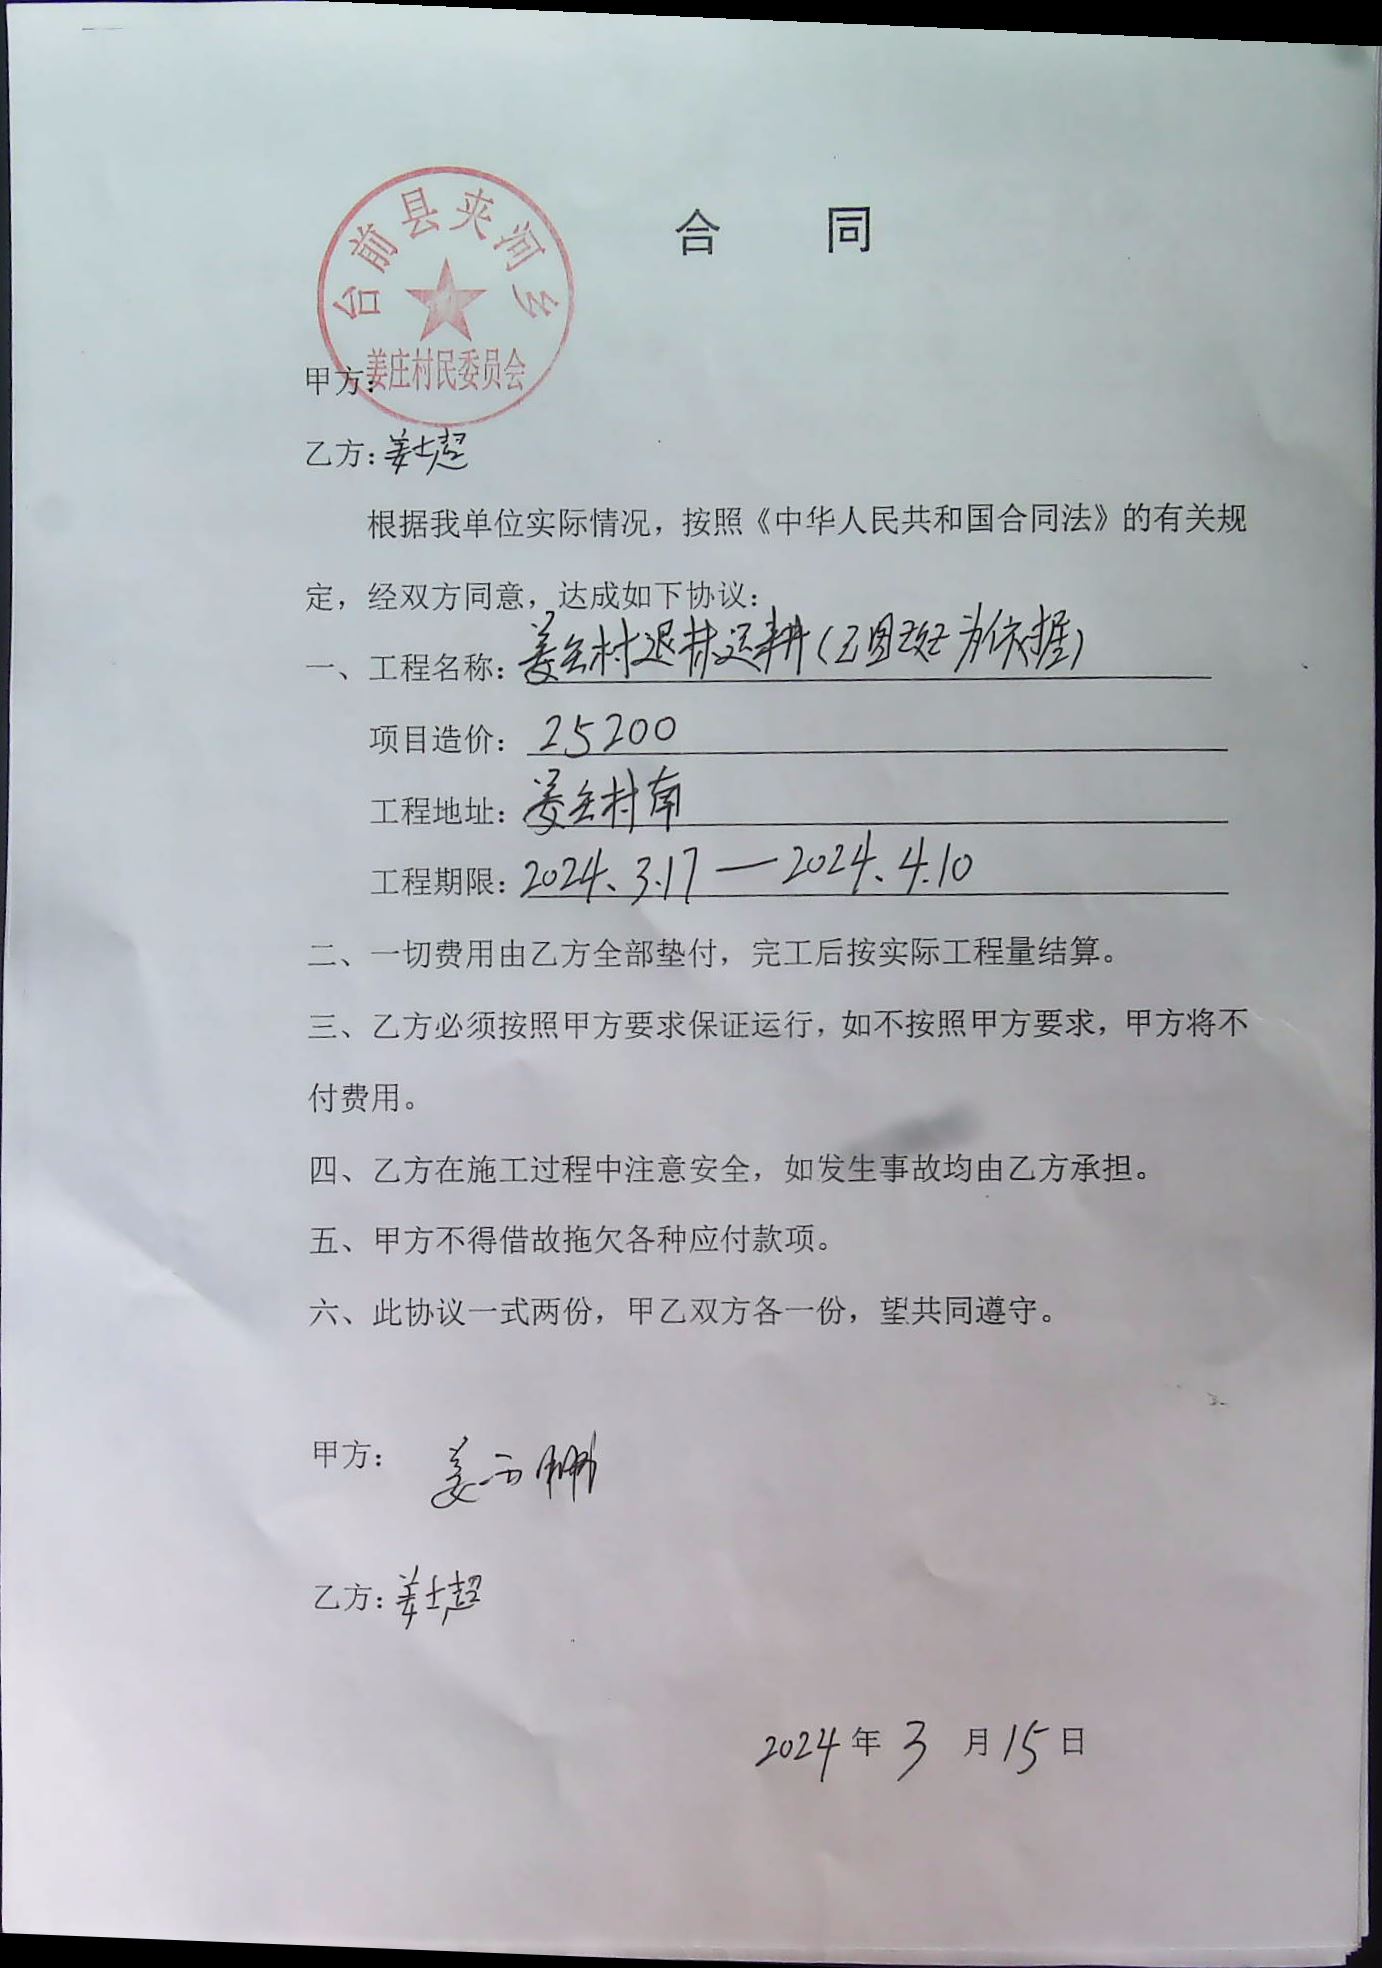 合 同
台前县夹河乡
姜庄村民委员会
甲方:
乙方:姜士超
根据我单位实际情况，按照《中华人民共和国合同法》的有关规
定，经双方同意，达成如下协议:
一、工程名称:姜庄村退林还耕(以图斑为依据)
项目造价: 25200
工程地址:姜庄村南
工程期限:2024.3.17—2024.4.10
二、一切费用由乙方全部垫付，完工后按实际工程量结算。
三、乙方必须按照甲方要求保证运行，如不按照甲方要求，甲方将不
付费用。
四、乙方在施工过程中注意安全，如发生事故均由乙方承担。
五、甲方不得借故拖欠各种应付款项。
六、此协议一式两份，甲乙双方各一份，望共同遵守。
甲方: 姜
乙方:姜士超
2024年3月15日